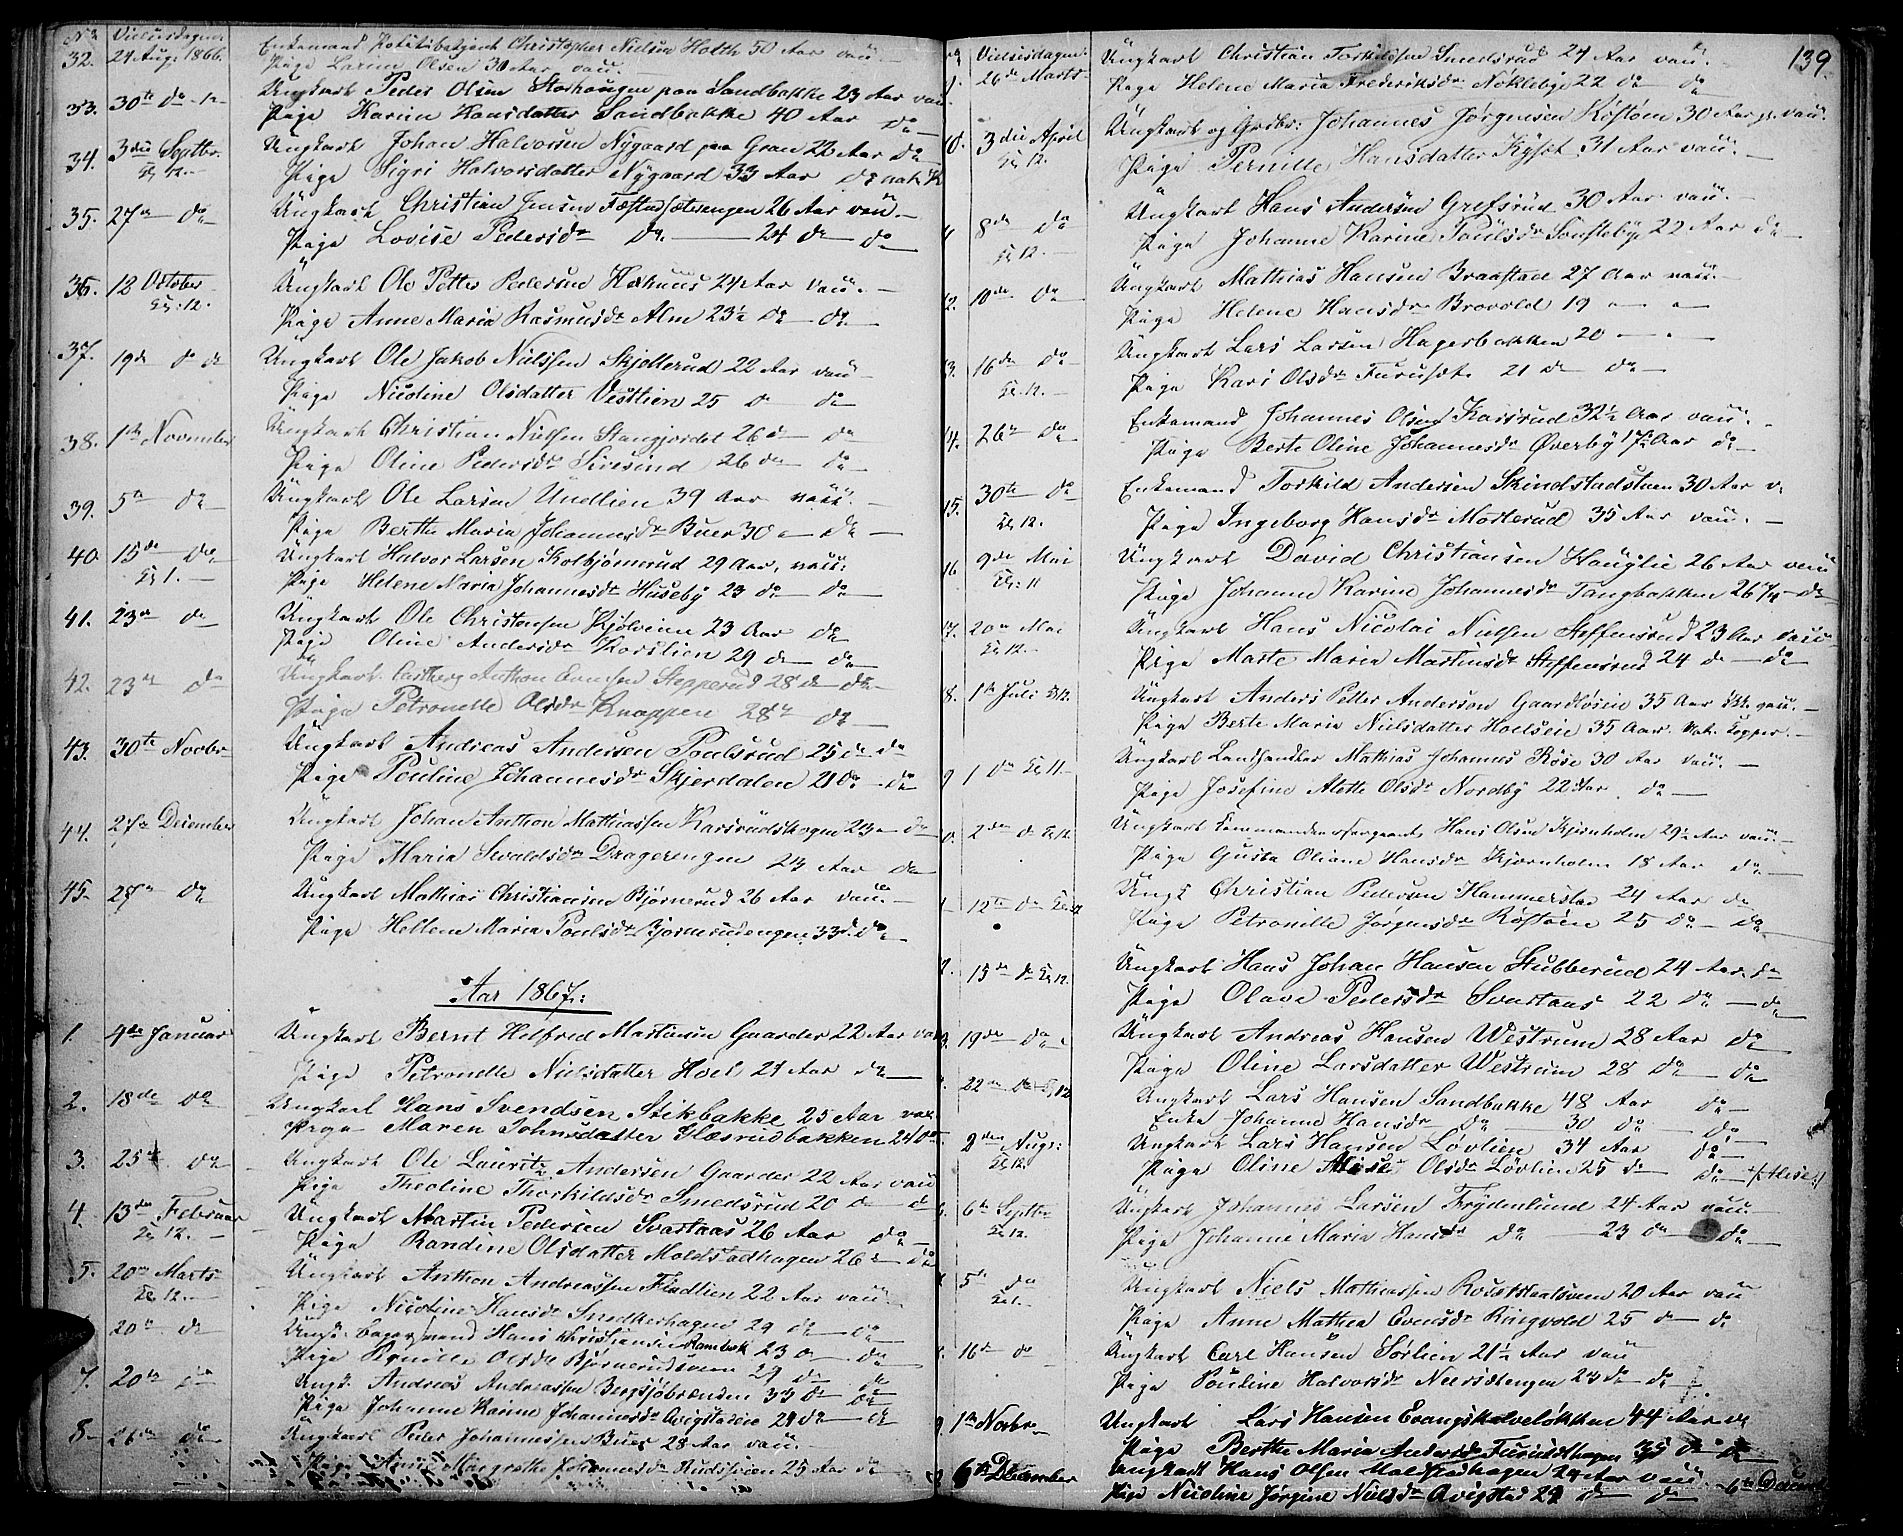 No Vielsesdagene
32. 24 Aug: 1866. Enkemand Politibetjent Christopher Nielsen Hoth 50 Aar vac:
Pige Larine Olsen 30 Aar vac:
33. 30te do Ungkarl Peder Olsen Storhaugen paa Sandbakke 23 Aar vac
Pige Karine Hansdatter Sandbakke 40 Aar do
34. 3die Septbr: Kl 12. Ungkarl Johan Halvorsen Nygaard paa Gran 22 Aar do
Pige Sigri Halvorsdatter Nygaard 33 Aar do nat. K
35. 27de do Ungkarl Christian Jensen Fæstad sæterengen 26 Aar vac.
Pige Lovise Pedersdr do 24 do do
36. 12 October Kl: 12. Ungkarl Ole Petter Pedersen 24 Aar vac.
Pige Anne Maria Rasmusdr Alm 23½ do do
37. 19de do Ungkarl Ole Jakob Nielsen Skjellerud 22 Aar vac
Pige Nicoline Olsdatter Vestlien 25 do
38. 1te November Ungkarl Christian Nielsen Stangjordet 26 do do
Pige Oline Pedersdr Sivesind 26 do do
39. 5te do Ungkarl Ole Larsen Undlien 39 Aar vac:
Pige Berthe Maria Johannesdr Buer 30 do
40. 15de do Kl 1. Ungkarl Halvor Larsen Kolbjørnrud 29 Aar, vac:
Pige Helene Maria Johannesdr Huseby 23 do do
41. 23de do Ungkarl Ole Christensen 23 Aar do
Pige Oline Andersdr 29 do do
42. 23de do Ungkarl Anthon Evensen Stepperud 28 do do
Pige Petronelle Olsdr Knappen 28de do
43. 30te Novbr Ungkarl Andreas Andersen Poulsrud 25 do do
Pige Pouline Johannesdr Skjerdalen 21 do do
44. 27de December Ungkarl Johan Anthon Mathiassen Karsrudskogen 23 do
Pige Maria Sevaldsdr Dragerengen 24 Aar do
45. 27de do Ungkarl Mathias Christiansen Bjørnerud 26 Aar vac.
Pige Hellene Maria Poulsdr Bjørnerudengen 33 do.
Aar 1867:
1. 4de Januar Ungkarl Bernt Helfred Martinsen Gaarder 22 Aar vac
Pige Petronelle Nielsdatter Hoel 21 Aar do
2. 18de do Ungkarl Hans Svendsen Stikbakke 25 Aar vac
Pige Maren Johnsdatter Glæsrudbakken 24 do
3. 25de do Ungkarl Ole Lauritz Andersen Gaarder 22 Aar vac
Pige Theoline Thorkildsdr Smedsrud 20 do
4. 13de Februar Kl 12. Ungkarl Martin Pedersen Svartaas 26 Aar do
Pige Randine Olsdatter Moldstadhagen 26 do
5. 20de Marts Kl 12. Ungkarl Anthon Andreassen Fladlien 22 Aar vac
Pige Nicoline Hansdr 29 do do
20de do Hans Christiansen 23 do
Pige Pernille Olsdr Bjørnerudsveen 29 do do
7. 20de do Ungk. Andreas Andreassen 33 do do
Pige Johanne Karine Johannesdr 24 do do
8. 26de do Ungkarl Peder Johannessen Buer 28 Aar vac.
Pige Anne Margrethe Johannesdr 25 Aar do
139.
Vielsesdagene:
9. 26de Marts Ungkarl Christian Torkildsen Smedsrud 24 Aar vac.
Pige Helene Maria Frederiksdr Nøkleby 22 do do
10. 3die April Kl 12. Ungkarl og Johannes Jørgensen Røstøen 30 Aar vac.
Pige Pernille Hansdatter Kyset 31 Aar vac.
8de do Kl 12. Ungkarl Hans Andersen Grefsrud 30 Aar vac.
Pige Johanne Karine Poulsdr Sønsteby 22 Aar do
12. 10de do Ungkarl Mathias Hansen Braastad 27 Aar vac.
Pige Helene Hansdr Brovold 19
13. 16de do Kl. 12. Ungkarl Lars Larsen Hagerbakken 20
Pige Kari Olsdr Furuset 21 do do
14. 26de do Enkemand Johannes Olsen Karsrud 32½ Aar vac.
Pige Berte Oline Johannesdr Øverby 17 Aar do
15. 30te do Kl 12. Enkemand Torkild Andersen Skindstadstuen 30 Aar v.
Pige Ingeborg Hansdr Morterud 35 Aar vac.
16. 9de Mai Kl: 11 Ungkarl David Christiansen Hauglie 26 Aar vac
Pige Johanne Karine Johannesdr Tangbakken 26¼ do
17. 20de Mai Kl 12. Ungkarl Hans Nicolai Nielsen Steffensrud 23 Aar vac
Pige Marte Maria Martinsdr Steffensrud 24 do do
18. 1te Juli Kl 12. Ungkarl Anders Petter Anderson Gaardløsen 35 Aar Ikke vac.
Pige Berte Maria Nielsdatter Hoelseie 35 Aar. Nat. Kopper.
19 1 do Kl 11. Ungkarl Landhandler Mathias Johannes Røise 30 Aar vac.
Pige Josefine Alette Olsdr Nordby 22 Aar. do
20. 2den do Kl 12. Ungkarl Kommandeersergeant Hans Olsen Kjørnholm 29½ Aar vac.
Pige Gusta Oliane Hansdr Kjørnholm 18 Aar do
12te do Kl 12 Ungk Christian Pedersen Hammerstad 24 Aar do
Pige Petronille Jørgensdr Røstøen 25 do do
15de do Kl 12. Ungkarl Hans Johan Hansen Stubberud 24 Aar do
Pige Olave Pedersdr Svartaas 22 do do
19de do Ungkarl Andreas Hansen Westrum 28 Aar do
Pige Oline Larsdatter Westrum 28 do do
22de do Kl 12 Ungkarl Lars Hansen Sandbakke 48 Aar do
Enke Johanne Hansdr do 30 do do
2den Augs: Kl 12. Ungkarl Lars Hansen Løvlien 34 Aar do
Pige Oline Alise Olsdr Løvlien 25 do do +/: Alise :/
6te Septbr Kl 12. Ungkarl Johannes Larsen Frydenlund 24 Aar vac.
Pige Johanne Maria Hansdr do 23 do do
5te do Kl 1. Ungkarl Niels Mathiassen 20 Aar vac
Pige Anne Mathea Evensdr Ringvold 25 do do
16de do Ungkarl Carl Hansen Sørlien 21½ Aar vac
Pige Pouline Halvorsdr 23 do do
1te Novbr Ungkarl Lars Hansen Evangskalveløkken 44 Aar v.
Pige Berthe Maria Andersdr Furusethagen 35 do do
6te December Ungkarl Hans Olsen Moldstadhagen 24 Aar vac
Pige Nicoline Jørgine Nielsdr Qvigstad 29 do do 6te December